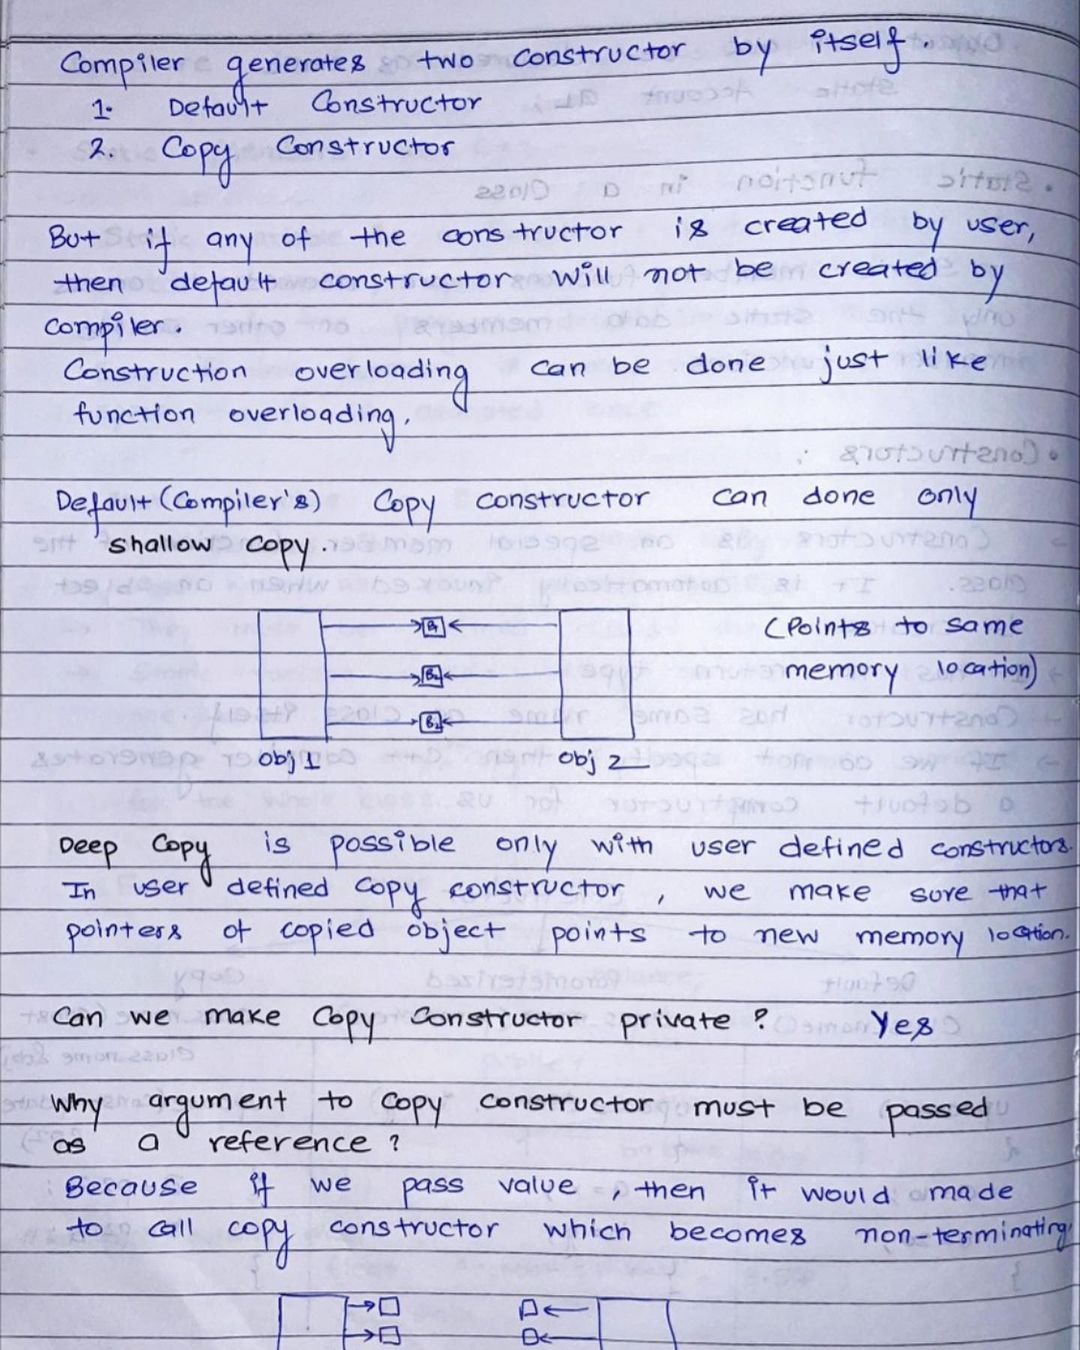 Compiler generates two constructor by itself.
1. Default Constructor
2. Copy Constructor
But if any of the constructor is created by user,
then default constructor will not be created by
compiler.
Construction overloading can be done just like
function overloading.
Default (Compiler's) Copy constructor can done only
shallow copy.
(Points to same
memory location)
Obj 1 Obj 2
Deep Copy is possible only with user defined constructors.
In user defined copy constructor, we make sure that
pointers of copied object points to new memory location.
Can we make Copy Constructor private? Yes
Why argument to copy constructor must be passed
as a reference?
Because if we pass value, then it would made
to call copy constructor which becomes non-terminating